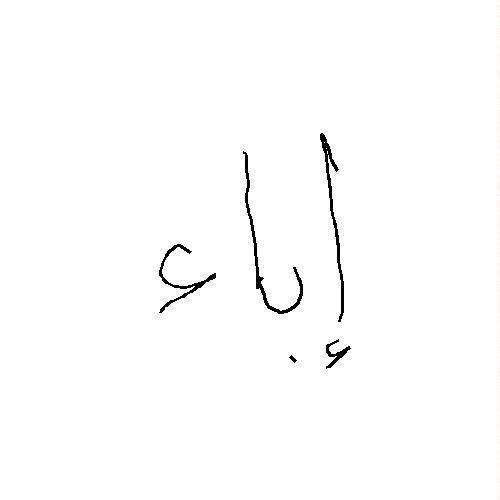 إباء